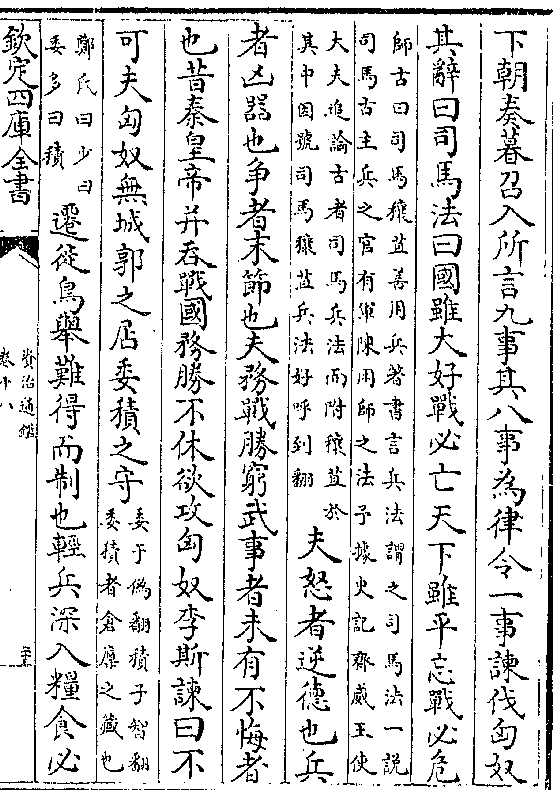 下朝奏暮召入所言九事其八事為律令一事諫伐匈奴
其辭曰司馬法曰國雖大好戰必亡天下雖平忘戰必危
師古曰司馬穰苴善用兵著書言兵法謂之司馬法一説
司馬古主兵之官有軍陳用師之法予據史記齊威王使
大夫追論古者司馬兵法而附穰苴於
其中因號司馬穰苴兵法好呼到翻
夫怒者逆德也兵
者凶器也争者末節也夫務戰勝窮武事者未有不悔者
也昔秦皇帝并吞戰國務勝不休欲攻匈奴李斯諫曰不
可夫匈奴無城郭之居委積之守
委于偽翻積子智翻
委積者倉廩之藏也
鄭氏曰少曰
委多曰積
遷徙鳥舉難得而制也輕兵深入糧食必
欽定四庫全書
資治通鑑
卷十八